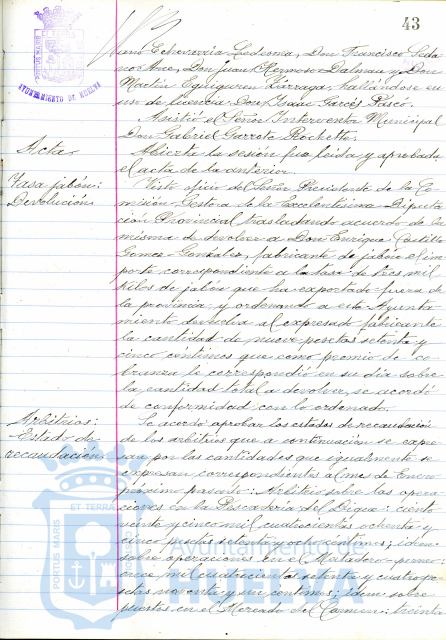 43
AYUNTAMIENTO DE HUELVA
cano Echeverria Ledesma, Don Francisco Seda
no Arce, Don Juan Reynoso Dalmau y Don
Martin Eguiguren Lizarraga, hallándose en
uso de licencia Don Isaac Garcés Pascó.
Asistió el Señor Interventor Municipal
Don Gabriel Garrote Rochetta.
Acta
Abierta la sesión fue leida y aprobada
el acta de la anterior.
Tasa jabón:
Devolución
Visto oficio del Señor Presidente de la Co
misión Gestora de la Excelentísima Diputa
ción Provincial trasladando acuerdo de la
misma de devolver a Don Enrique Castillo
Gomez Gonzalez, fabricante de jabón el im
porte correspondiente a la tasa de tres mil
kilos de jabón que ha exportado fuera de
la provincia, y ordenando a este Ayunta
miento devuelva al expresado fabricante
la cantidad de nueve pesetas setenta y
cinco céntimos que como premio de co
branza le correspondió en su dia sobre
la cantidad total a devolver, se acordó
de conformidad con lo ordenado.
Arbitrios:
Estado de
recaudación
Se acordó aprobar los estados de recaudación
de los arbitrios que a continuación se expre
san por las cantidades que igualmente se
expresan, correspondientes al mes de Enero
próximo pasado: Arbitrio sobre las opera
ciones en la Pescadería del Dique: ciento
veinte y cinco mil cuatrocientas ochenta y
cinco pesetas setenta y ocho céntimos; idem
sobre operaciones en el Matadero:
once mil cuatrocientas setenta y cuatro pe
setas noventa y un céntimos; idem sobre
puestos en el Mercado del Carmen: treinta
PORTUS MARIS ET TERRAE
Ayuntamiento de
HUELVA